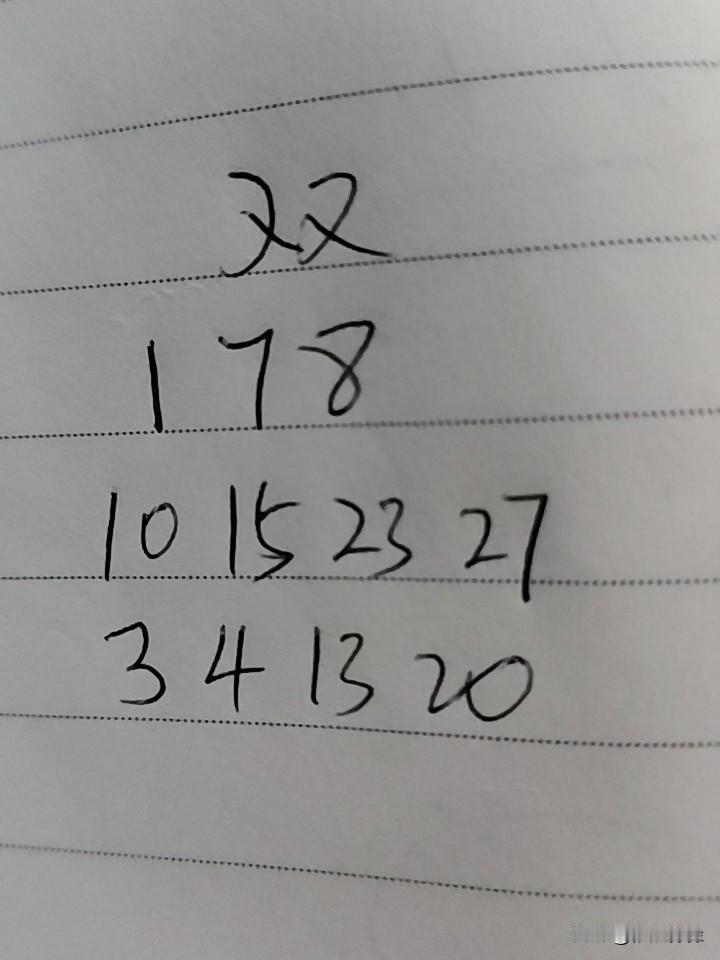 双
1 7 8
10 15 23 27
3 4 13 20